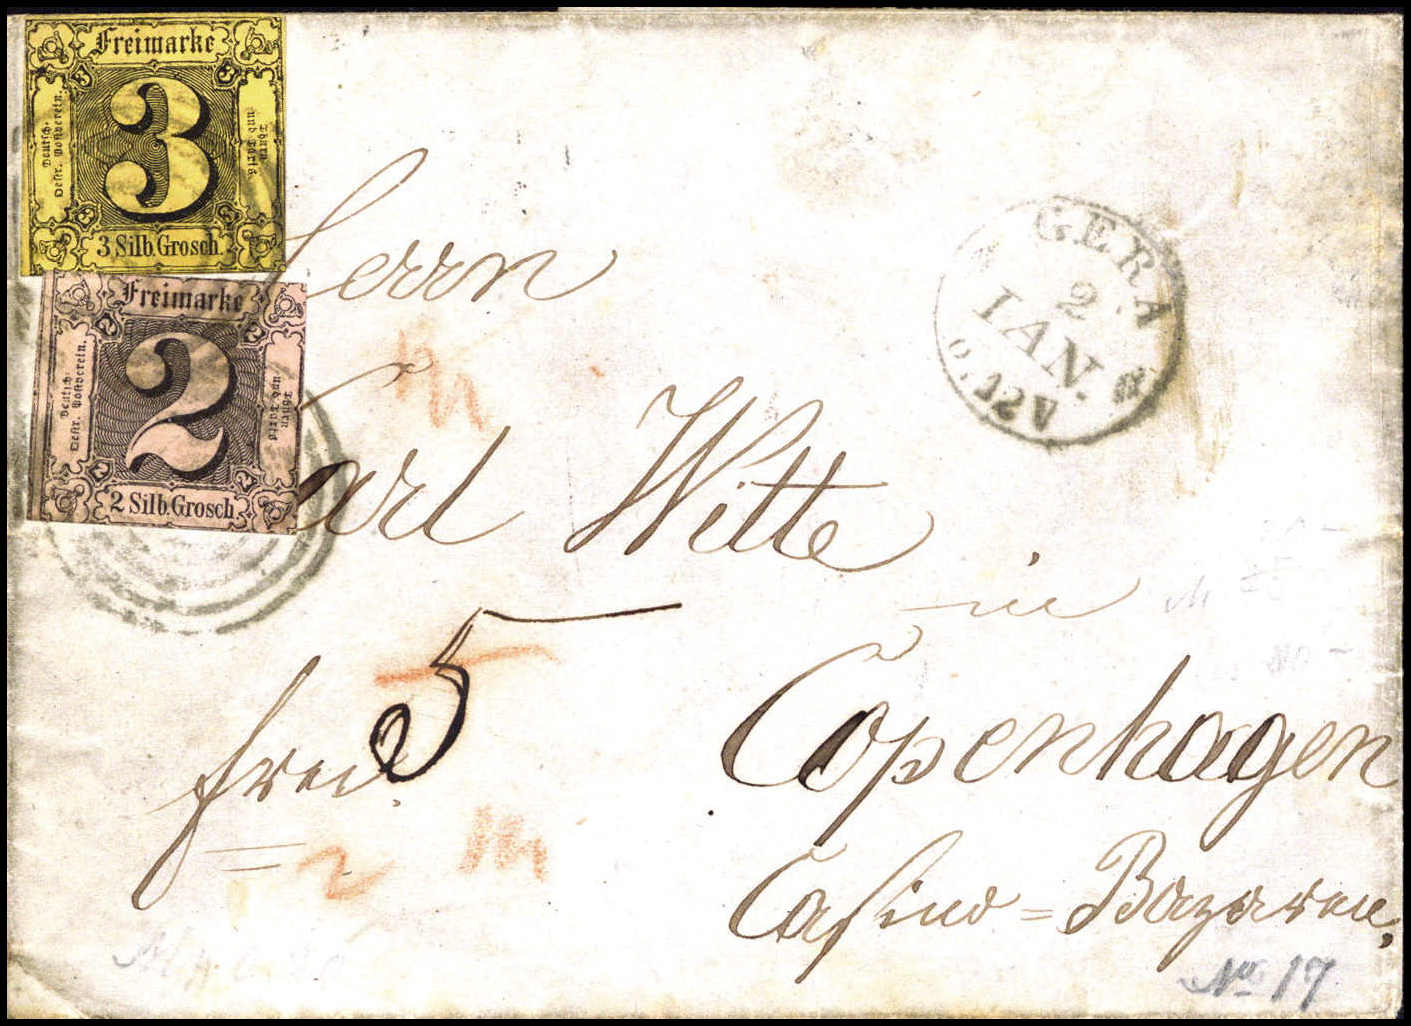 Freimarke
3
3
3
Deutsch-
Oestr. Postverein.
Thurn
und Taxis
3
3
3 Silb. Grosch.
Freimarke
2
2
2
Deutsch-
Oestr. Postverein.
Thurn
und Taxis
2
2
2 Silb. Grosch.
GERA
2
IAN.
Herrn
Carl Witte
in
Copenhagen
Casino = Bazaren,
frei.
5
2
No 17